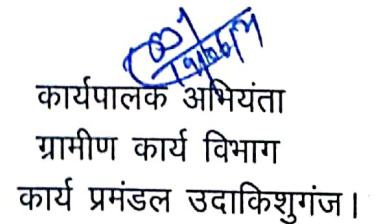 कार्यपालक अभियंता
ग्रामीण कार्य विभाग
कार्य प्रमंडल उदाकिशुगंज।